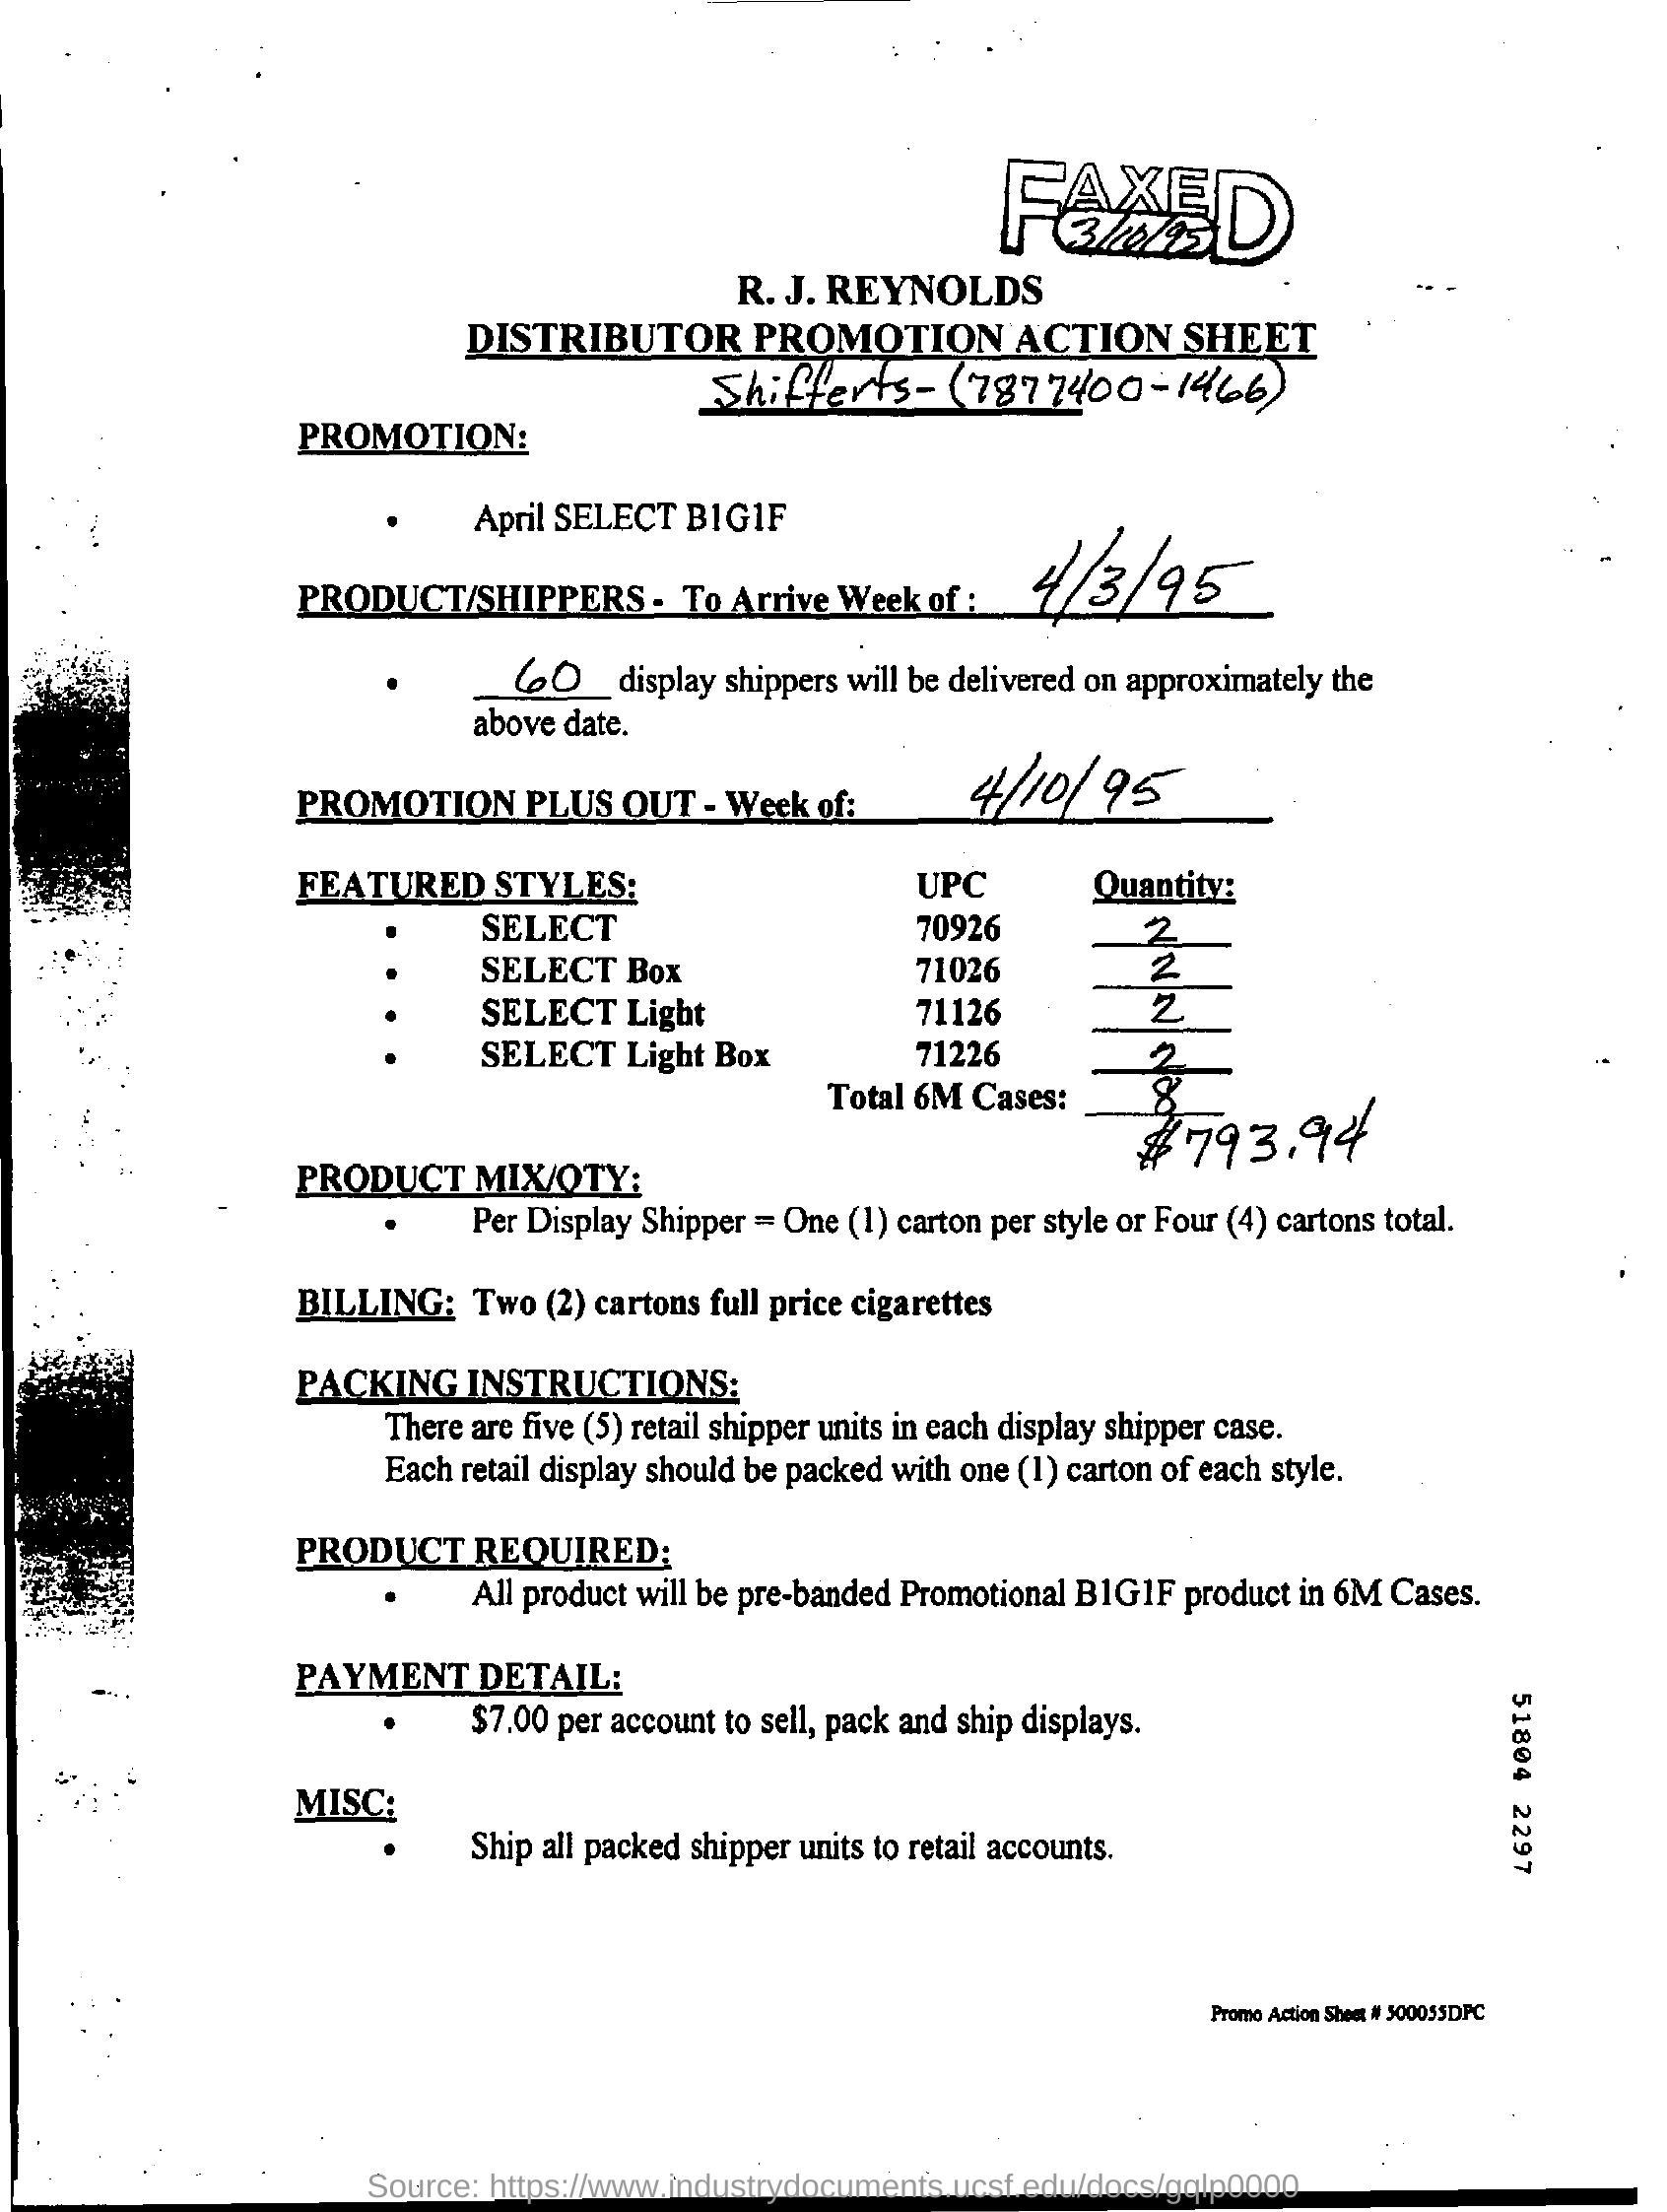 FAXED
3/10/95
R. J. REYNOLDS
DISTRIBUTOR PROMOTION ACTION SHEET
Shifferts - (7877400-1466)
PROMOTION:
• April SELECT B1G1F
PRODUCT/SHIPPERS - To Arrive Week of : 4/3/95
• 60 display shippers will be delivered on approximately the
above date.
PROMOTION PLUS OUT - Week of: 4/10/95
FEATURED STYLES: UPC Quantity:
• SELECT 70926 2
• SELECT Box 71026 2
• SELECT Light 71126 2
• SELECT Light Box 71226 2
Total 6M Cases: 8
$793.94
PRODUCT MIX/QTY:
• Per Display Shipper = One (1) carton per style or Four (4) cartons total.
BILLING: Two (2) cartons full price cigarettes
PACKING INSTRUCTIONS:
There are five (5) retail shipper units in each display shipper case.
Each retail display should be packed with one (1) carton of each style.
PRODUCT REQUIRED:
• All product will be pre-banded Promotional B1G1F product in 6M Cases.
PAYMENT DETAIL:
• $7.00 per account to sell, pack and ship displays.
MISC:
• Ship all packed shipper units to retail accounts.
51804 2297
Promo Action Sheet # 500055DPC
Source: https://www.industrydocuments.ucsf.edu/docs/gqlp0000